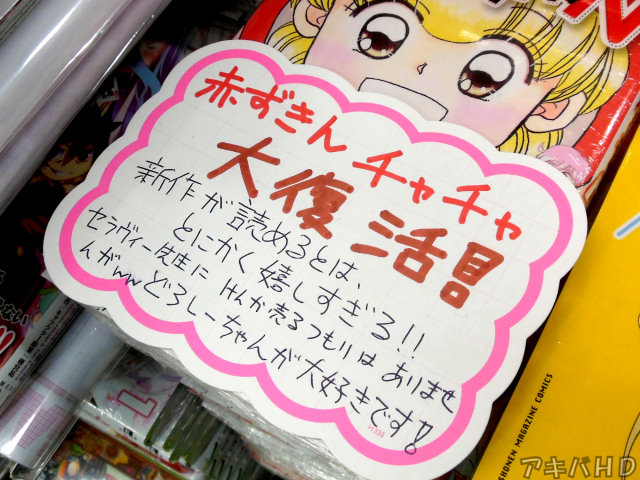 赤ずきん チャチャ
大復活!!
新作が読めるとは、
とにかく嬉しすぎる!!
セラヴィー先生に けんか売るつもりは ありませ
んがww どろしーちゃんが大好きです!
SHONEN MAGAZINE COMICS
アキバHD